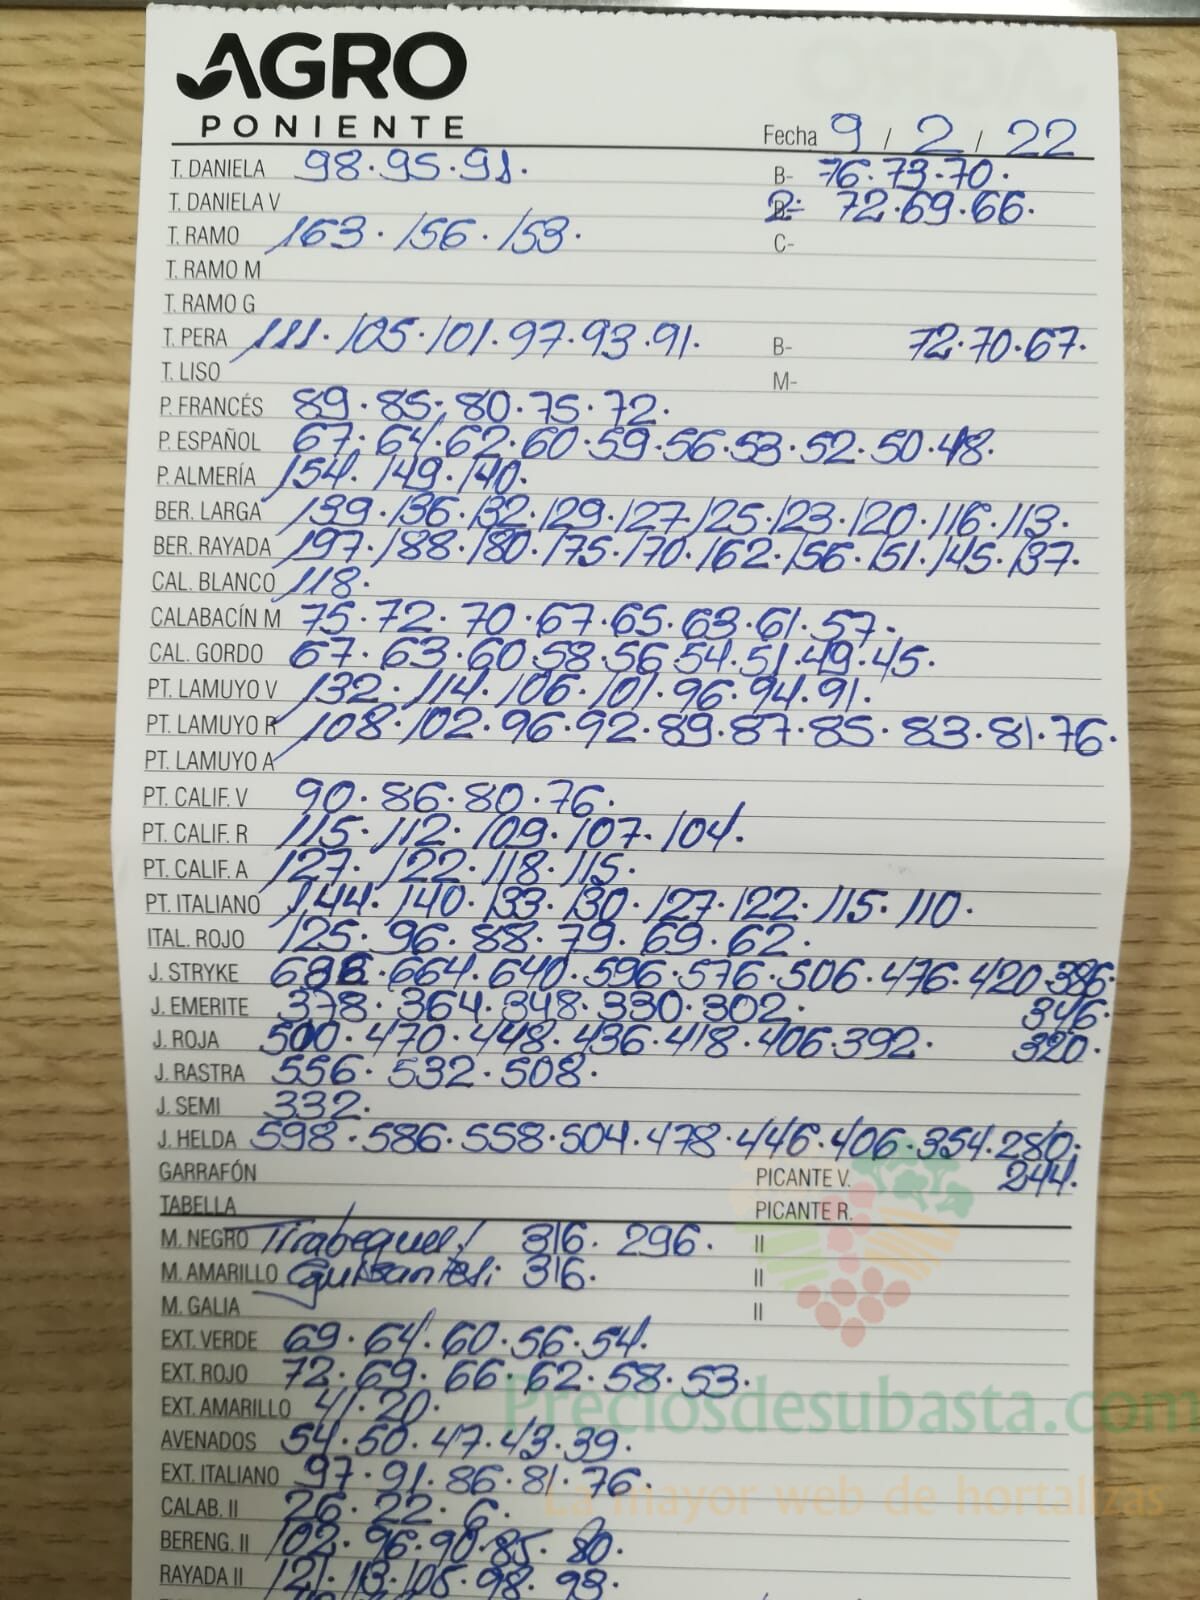 AGRO
PONIENTE
Fecha 9 / 2 / 22
T. DANIELA 98. 95. 91. B- 76. 73. 70.
T. DANIELA V 2: 72. 69. 66.
T. RAMO 163. 156. 153. C-
T. RAMO M
T. RAMO G
T. PERA 111. 105. 101. 97. 93. 91. B- 72. 70. 67.
T. LISO M-
P. FRANCÉS 89. 85. 80. 75. 72.
P. ESPAÑOL 67. 64. 62. 60. 59. 56. 53. 52. 50. 48.
P. ALMERÍA 154. 149. 140.
BER. LARGA 139. 136. 132. 129. 127. 125. 123. 120. 116. 113.
BER. RAYADA 197. 188. 180. 175. 170. 162. 156. 151. 145. 137.
CAL. BLANCO 118.
CALABACÍN M 75. 72. 70. 67. 65. 63. 61. 57.
CAL. GORDO 67. 63. 60. 58. 56. 54. 51. 49. 45.
PT. LAMUYO V 132. 114. 106. 101. 96. 94. 91.
PT. LAMUYO R 108. 102. 96. 92. 89. 87. 85. 83. 81. 76.
PT. LAMUYO A
PT. CALIF. V 90. 86. 80. 76.
PT. CALIF. R 115. 112. 109. 107. 104.
PT. CALIF. A 127. 122. 118. 115.
PT. ITALIANO 144. 140. 133. 130. 127. 122. 115. 110.
ITAL. ROJO 125. 96. 88. 79. 69. 62.
J. STRYKE 664. 640. 596. 576. 506. 476. 420. 386.
J. EMERITE 378. 364. 348. 330. 302. 346.
J. ROJA 500. 470. 448. 436. 418. 406. 392. 320.
J. RASTRA 556. 532. 508.
J. SEMI 332.
J. HELDA 598. 586. 558. 504. 478. 446. 406. 354. 280.
GARRAFÓN PICANTE V. 244.
TABELLA PICANTE R.
M. NEGRO Tirabeques: 316. 296. II
M. AMARILLO Guisantes: 316. II
M. GALIA II
EXT. VERDE 69. 64. 60. 56. 54.
EXT. ROJO 72. 69. 66. 62. 58. 53.
EXT. AMARILLO 41. 20.
Preciosdesubasta.com
AVENADOS 54. 50. 47. 43. 39.
EXT. ITALIANO 97. 91. 86. 81. 76.
La mayor web de hortalizas
CALAB. II 26. 22. 6.
BERENG. II 102. 96. 90. 85. 80.
RAYADA II 121. 113. 105. 98. 93.